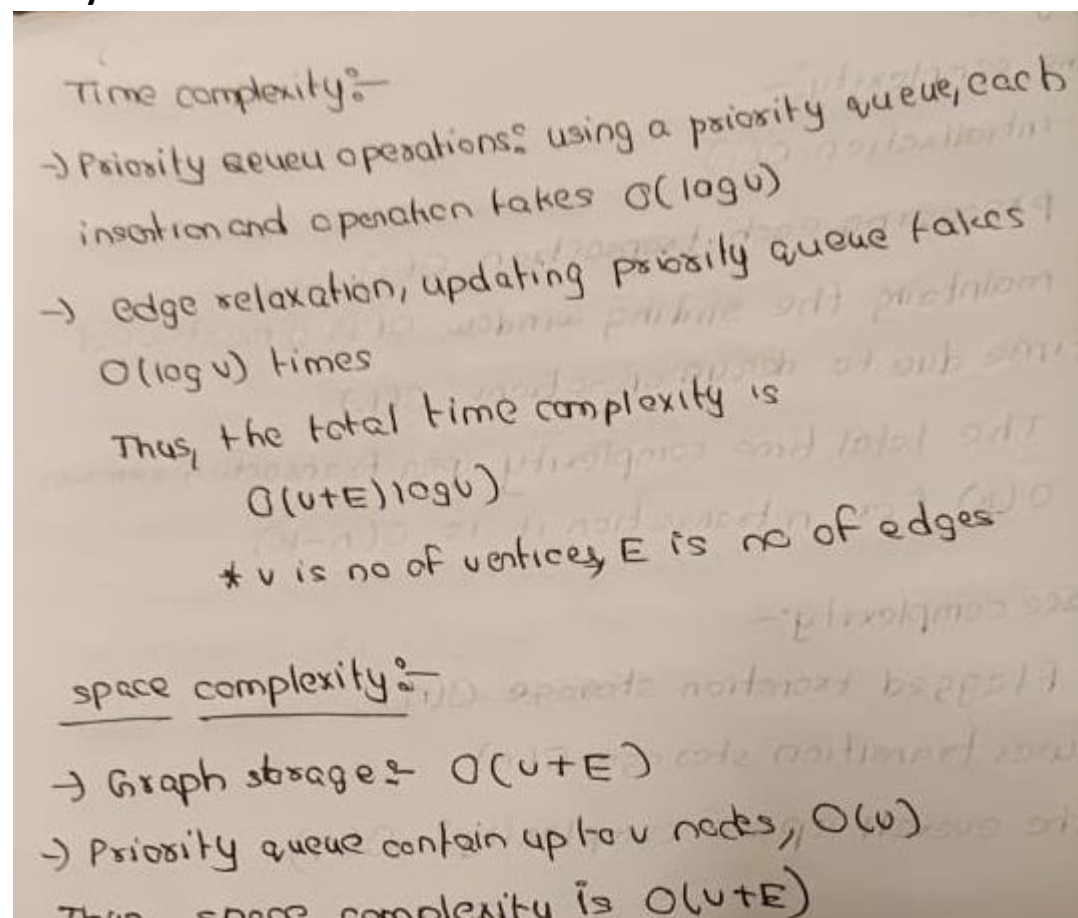 Time complexity:-
→ Priority Qeueu operations: using a priority queue, each
insertion and operation takes O(log v)
→ edge relaxation, updating priority queue takes
O(log v) times
Thus, the total time complexity is
O(v+E) log v)
* v is no of vertices, E is no of edges
space complexity:-
→ Graph storage:- O(v+E)
→ Priority queue contain up to v nodes, O(v)
Thus space complexity is O(v+E)